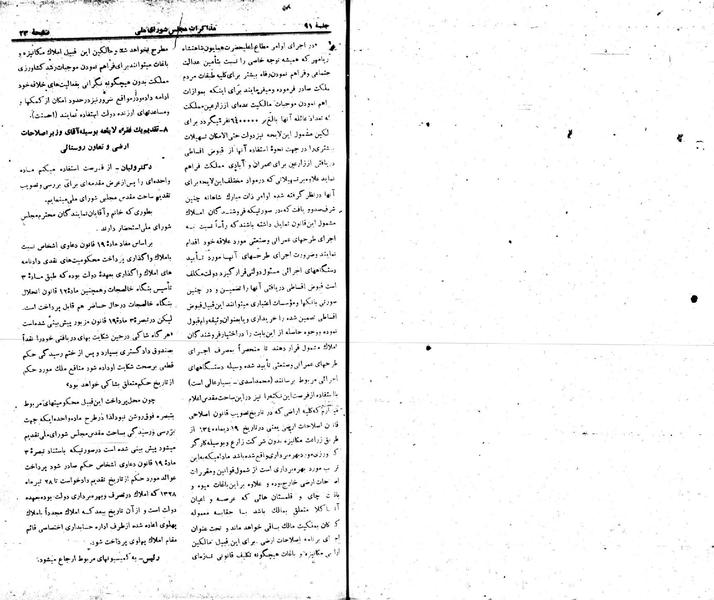 جلسهٔ ۹۱
مذاکرات مجلس شورای ملی
صفحهٔ ۲۳
در اجرای اوامر مطاع اعلیحضرت همایون شاهنشاه
آریامهر که همیشه توجه خاصی را نسبت بتأمین عدالت
اجتماعی و فراهم نمودن رفاه بیشتر برای کلیه طبقات مردم
مملکت صادر فرموده و میفرمایند برای اینکه بموازات
فراهم نمودن موجبات مالکیت عده‌ای از زارعین مملکت
لکین مشمول این لایحه نیز دولت حتی‌الامکان تسهیلات
بیشتری را در جهت نحوهٔ استفاده آنها از قبوض اقساطی
دریافتی از زارعین برای عمران و آبادی مملکت فراهم
نماید علاوه بر تسهیلاتی که در مواد مختلف این لایحه برای
آنها در نظر گرفته شده اوامر ذات مبارک شاهانه چنین
شرف صدور یافت که در صورتیکه فروشندگان املاک
مشمول این قانون تمایل داشته باشند که رأساً نسبت به
اجرای طرحهای عمرانی و صنعتی مورد علاقه خود اقدام
نمایند و ضرورت اجرای طرحهای آنها مورد تأیید
دستگاههای اجرائی مسئول دولتی قرار گیرد دولت مکلف
است قبوض اقساطی دریافتی آنها را تضمین و در چنین
صورتی بانکها و مؤسسات اعتباری میتوانند این قبیل قبوض
اقساطی تضمین شده را خریداری و یا بعنوان وثیقه وام قبول
نموده و وجوه حاصله از این بابت را در اختیار فروشندگان
املاک مشمول قرار دهند تا منحصراً بمصرف اجرای
طرحهای عمرانی و صنعتی تأیید شده وسیله دستگاههای
اجرائی مربوط برسانند (محمد اسدی - بسیار عالی است)
با استفاده از فرصت این نکته را نیز در این ساحت مقدس اعلام
میدارم که کلیه اراضی که در تاریخ تصویب قانون اصلاحی
قانون اصلاحات ارضی یعنی در تاریخ ۱۹ دیماه ۱۳۴۰ از
طریق زراعت مکانیزه بدون شرکت زارع و بوسیله کارگر
کشاورزی مورد بهره‌برداری واقع شده باشد مادام که به این
ترتیب مورد بهره‌برداری است از شمول قوانین و مقررات
اصلاحات ارضی خارج بوده و علاوه بر این باغات میوه و
باغات چای و قلمستان هائی که عرصه و اعیان
آنها کلا متعلق بمالک باشد کما حقاً
کان بملکیت مالک باقی خواهد ماند و تحت عنوان
اجرای برنامه اصلاحات ارضی برای این قبیل مالکین
اراضی مکانیزه و باغات هیچگونه تکلیف قانونی تازه‌ای
مطرح نخواهد شد و مالکین این قبیل املاک مکانیزه و
باغات میتوانند برای فراهم نمودن موجبات رشد کشاورزی
مملکت بدون هیچگونه نگرانی بفعالیت‌های خلاقه خود
ادامه داده و در مواقع ضروری نیز در حدود امکان از کمکها و
مساعدتهای ارزنده دولت استفاده نمایند (احسنت).
۸- تقدیم یک فقره لایحه بوسیله آقای وزیر اصلاحات
ارضی و تعاون روستائی
دکتر ولیان - از فرصت استفاده میکنم ماده
واحده‌ای را پس از عرض مقدمه‌ای برای بررسی و تصویب
تقدیم ساحت مقدس مجلس شورای ملی مینمایم.
بطوری که خانم و آقایان نمایندگان محترم مجلس
شورای ملی استحضار دارند.
بر اساس مفاد مادهٔ ۱۹ قانون دعاوی اشخاص نسبت
باملاک واگذاری پرداخت محکومیت‌های نقدی دادنامه
های املاک واگذاری بعهدهٔ دولت بوده که طبق مادهٔ ۳
تأسیس بنگاه خالصجات و همچنین مادهٔ ۱۲ قانون انحلال
بنگاه خالصجات در حال حاضر هم قابل پرداخت است.
لیکن در تبصرهٔ ۳ مادهٔ ۱۹ قانون مزبور پیش بینی شده است
«هرگاه شاکی در حین شکایت بهای دریافتی خود را نقداً
بصندوق دادگستری بسپارد و پس از ختم رسیدگی حکم
قطعی بر صحت شکایت او داده شود منافع ملک مورد حکم
از تاریخ حکم متعلق بشاکی خواهد بود»
چون محل پرداخت این قبیل محکومیتهای مربوط
بتبصره فوق روشن نبود لذا در طرح ماده واحده اینکه جهت
بررسی و رسیدگی بساحت مقدس مجلس شورای ملی تقدیم
میشود پیش بینی شده است در صورتیکه باستناد تبصرهٔ ۳
مادهٔ ۱۹ قانون دعاوی اشخاص حکم صادر شود پرداخت
عوائد مورد حکم از تاریخ تقدیم دادخواست تا ۲۸ تیر ماه
۱۳۲۸ که املاک در تصرف و بهره‌برداری دولت بوده بعهده
دولت است و از آن تاریخ ببعد که املاک مجدداً باملاک
پهلوی اعاده شده از طرف اداره حسابداری اختصاصی قائم
مقام املاک پهلوی پرداخت شود.
رئیس - به کمیسیونهای مربوط ارجاع میشود.